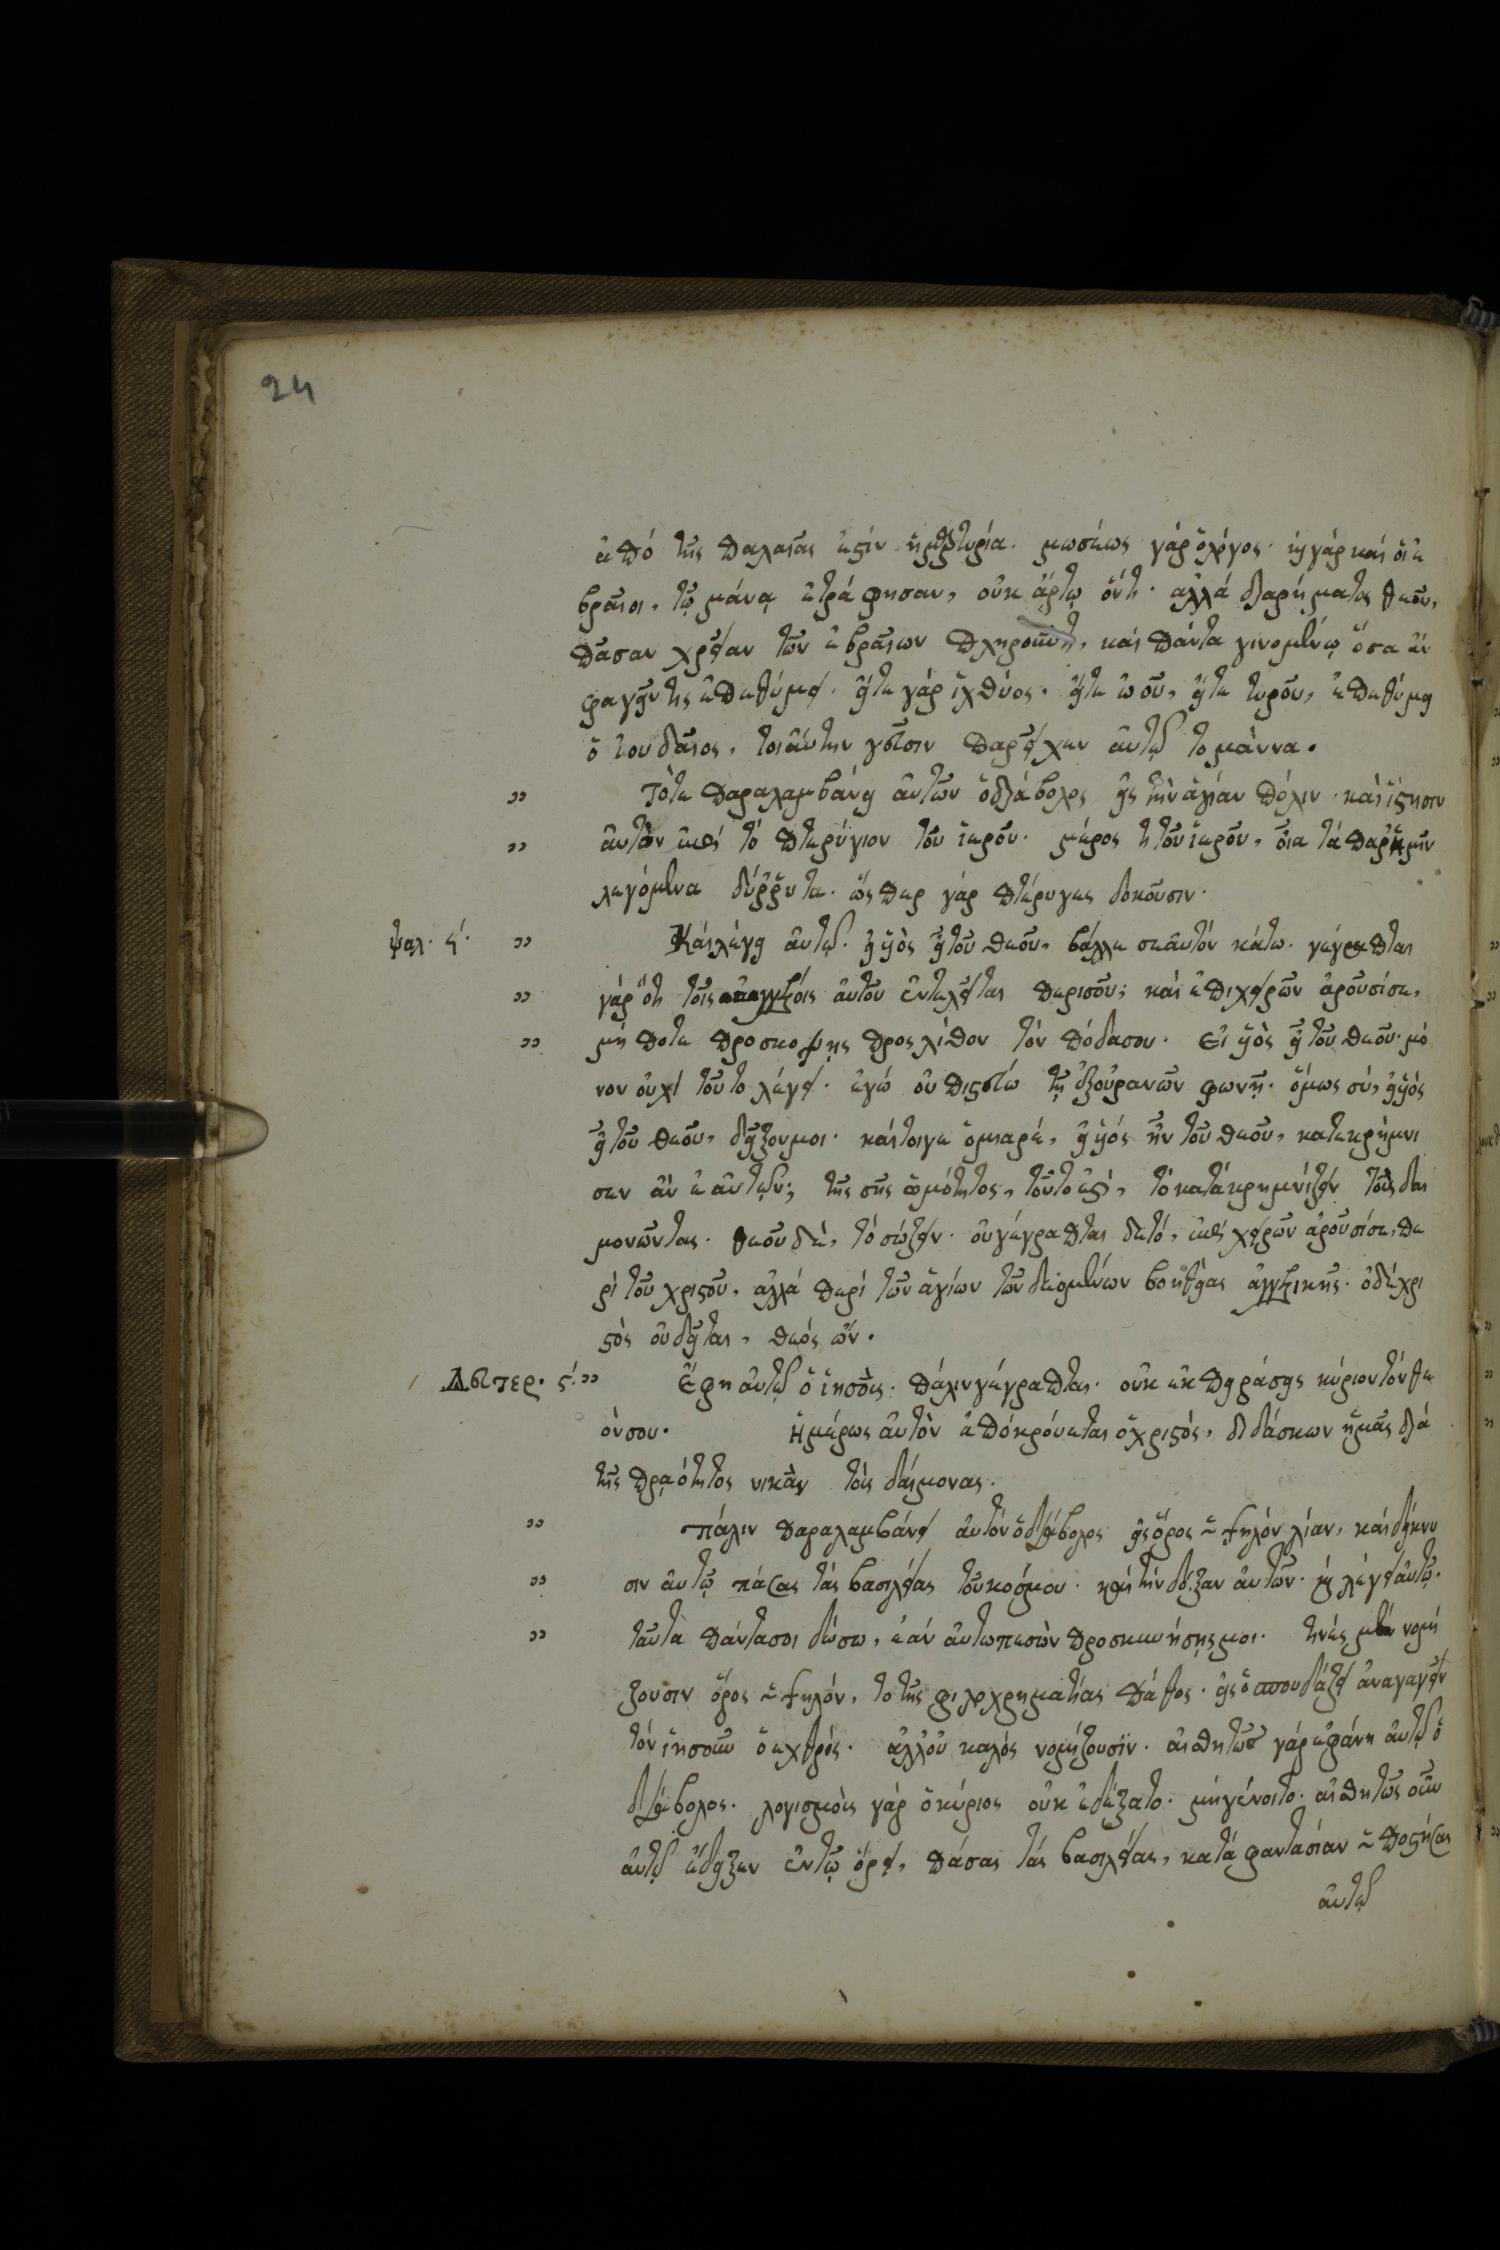 24
ἀπό τῆς παλαιᾶς ἐστίν ἡ μαρτυρία. μωσέως γάρ ὁ λόγος. καὶ γάρ καὶ οἱ ἑ
βραῖοι, τῷ μάνᾳ ἐτράφησαν, οὐκ ἄρτῳ ὄντι. ἀλλά διαρήματος θεοῦ,
πᾶσαν χρείαν τῶν ἑβραίων πληροῦντι, καὶ πάντα γινομένῳ ὅσα ἄν
φαγεῖν τις ἐπεθύμει. εἴτε γάρ ἰχθύος. εἴτε ὠοῦ, εἴτε τυροῦ, ἐπεθύμει
ὁ ἰουδαῖος, τοιαύτην γεῦσιν παρεῖχεν αὐτῷ το μάννα.
" Τότε παραλαμβάνει αὐτῶν ὁ διάβολος εἰς τήν ἁγίαν πόλιν. καὶ ἵστησιν
" αὐτὸν ἐπί τό πτερύγιον τοῦ ἱεροῦ. μέρος τι τοῦ ἱεροῦ, οἷα τά παρ' ἡμῖν
λεγόμενα δύῤῥυτα. ὥς περ γάρ πτέρυγες δοκοῦσιν.
ψαλ. ϛ. " Καὶ λέγει αὐτῷ. εἰ υἱὸς εἶ τοῦ θεοῦ, βάλλε σεαυτόν κάτω. γέγραπται
" γάρ ὅτι τοῖς ἀγγέλοις αὐτοῦ ἐντελεῖται περισοῦ; καὶ ἐπιχειρῶν ἀροῦσίσε,
" μή ποτε προσκόψῃς προς λίθον τόν πόδασου. Εἰ υἱὸς εἶ τοῦ θεοῦ. μό
νον οὐχί τοῦτο λέγει. ἐγώ οὐ πιστεύω τῇ ἐξουρανῶν φωνῇ. ὅμως σύ, εἰ υἱός
εἶ τοῦ θεοῦ, δεῖξονμοι. καίτοιγε ὁ μιαρέ, εἰ υἱός ἦν τοῦ θεοῦ, κατεκρήμνι
σεν ἄν ἑαυτόν; τῆς σῆς ὠμότητος, τοῦτο ἐστί, τό κατακρημνίζειν τοὺς δαι
μονῶντας. θεοῦ δέ, τό σώζειν. οὐ γέγραπται δετό, ἐπί χειρῶν ἀροῦσίσε, πε
ρί τοῦ χριστοῦ, ἀλλά περί τῶν ἁγίων τῶν δεομένων βοηθείας ἀγγελικῆς. ὁ δέ χρι
στὸς οὐ δεῖται, θεός ὤν.
Δευτερ. ϛ. " Ἔφη αὐτῷ ὁ ἰησοῦς. πάλιν γέγραπται. οὐκ ἐκπειράσεις κύριον τόν θε
όνσου. ἡμέρως αὐτὸν ἀποκρούεται ὁ χριστός, διδάσκων ἡμᾶς διά
τῆς πρᾳότητος νικᾶν τοὺς δαίμονας.
" πάλιν παραλαμβάνει αὐτόν ὁ διάβολος εἰς ὄρος ὑψηλόν λίαν, καὶ δείκνυ
" σιν αὐτῷ πάσας τάς βασιλείας τοῦ κόσμου. καὶ τήν δόξαν αὐτῶν. καὶ λέγει αὐτῷ.
" ταῦτα πάντασοι δώσω, ἐάν αὐτωπεσὼν προσκυνήσῃςμοι. τινές μέν νομί
ζουσιν ὄρος ὑψηλόν, το τῆς φιλοχρηματίας πάθος. εἰς ὅ σπουδάζει ἀναγαγεῖν
τόν ἰησοῦν ὁ ἐχθρός. ἀλλ' οὐ καλός νομίζουσιν. αἰσθητῶς γάρ ἐφάνη αὐτῷ ὁ
διάβολος. λογισμούς γάρ ὁ κύριος οὐκ ἐδέξατο. μή γένοιτο. αἰσθητῶς οὖν
αὐτῷ ἔδειξεν ἐν τῷ ὄρει, πάσας τάς βασιλείας, κατά φαντασίαν ὑποστήσας
αὐτῷ